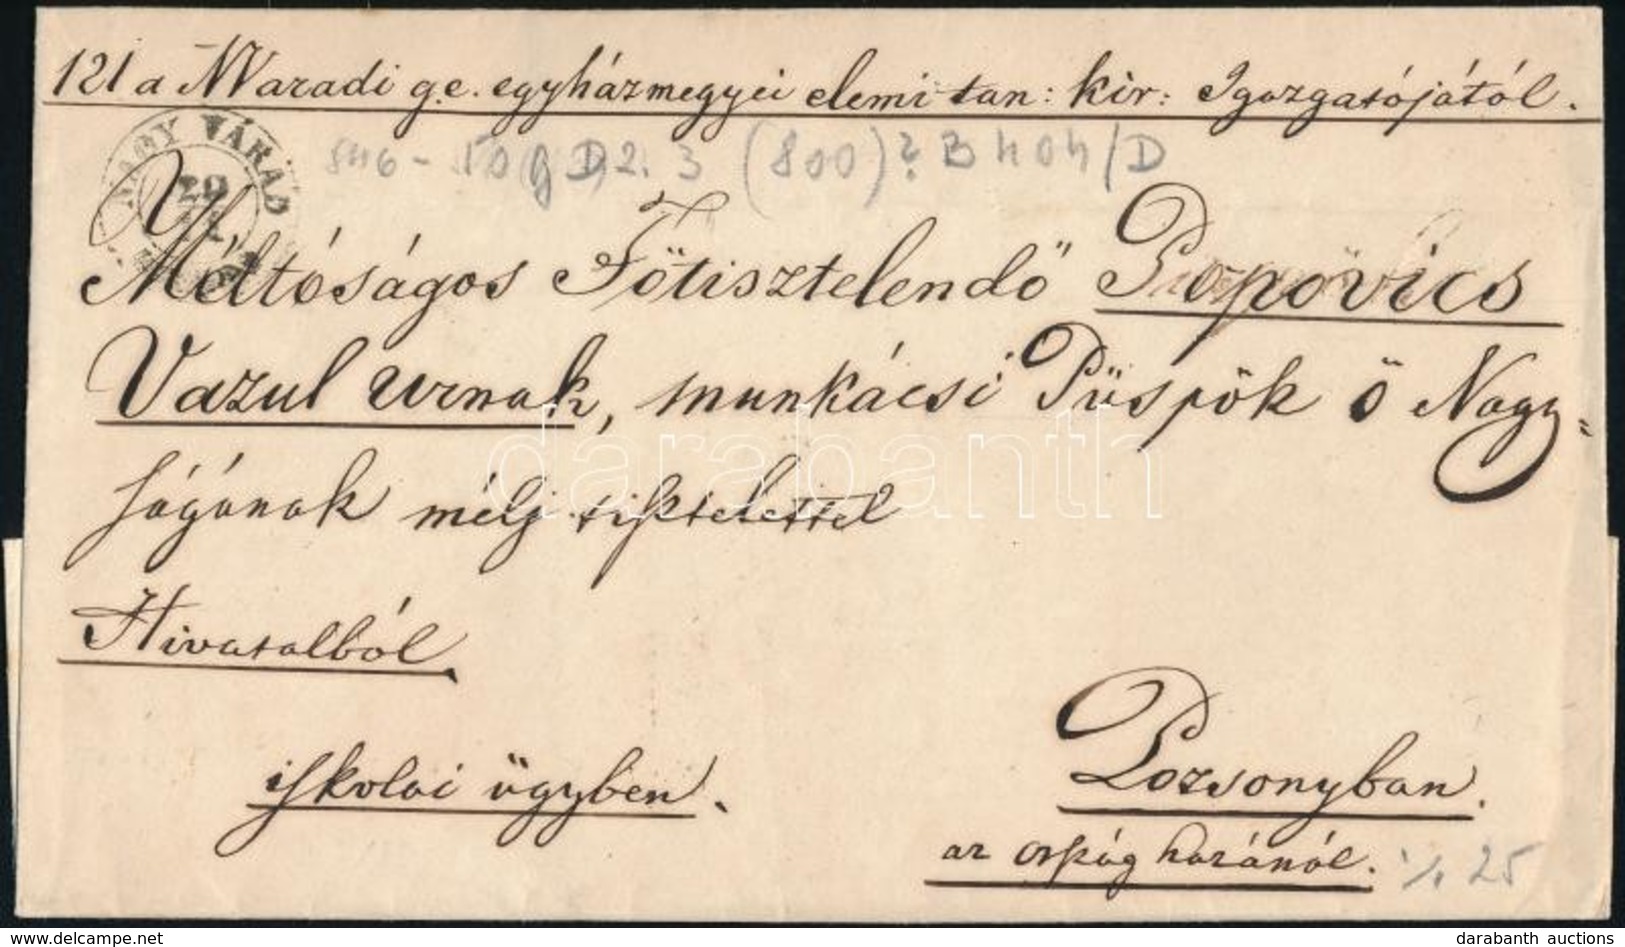 121 a NVaradi g.e. egyházmegyei elemi tan: kir: Igazgatójától.
NAGY VÁRAD
29
546 - 10 g D, 2. 3 (800)? B 404/D
Méltóságos Főtisztelendő Popovics
Vazul urnak, munkácsi Püspök ő Nagy=
ságának mély tisztelettel
Hivatalból.
iskolai ügyben.
Pozsonyban.
az ország házánál.
25
darabanth
darabanth auctions
www.delcampe.net